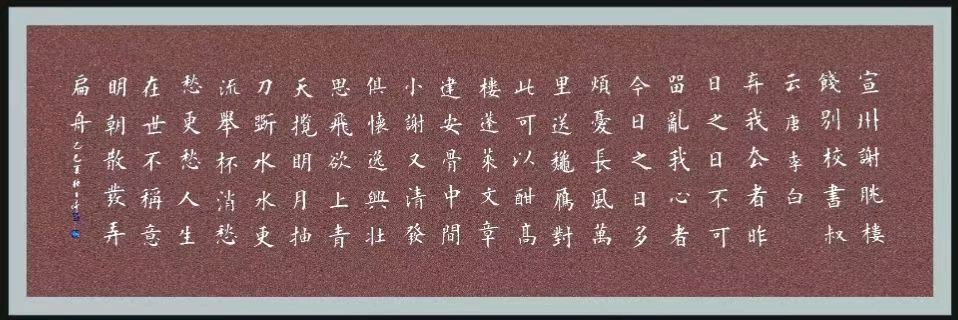 宣州謝朓樓
餞別校書叔
云唐李白
弃我厺者昨
日之日不可
畱亂我心者
今日之日多
煩憂長風萬
里送龝鴈對
此可以酣高
樓蓬萊文章
建安骨中間
小謝又清發
俱懷逸興壯
思飛欲上青
天攬明月抽
刀斷水水更
流舉杯消愁
愁更愁人生
在世不稱意
明朝散髮弄
扁舟
乙巳